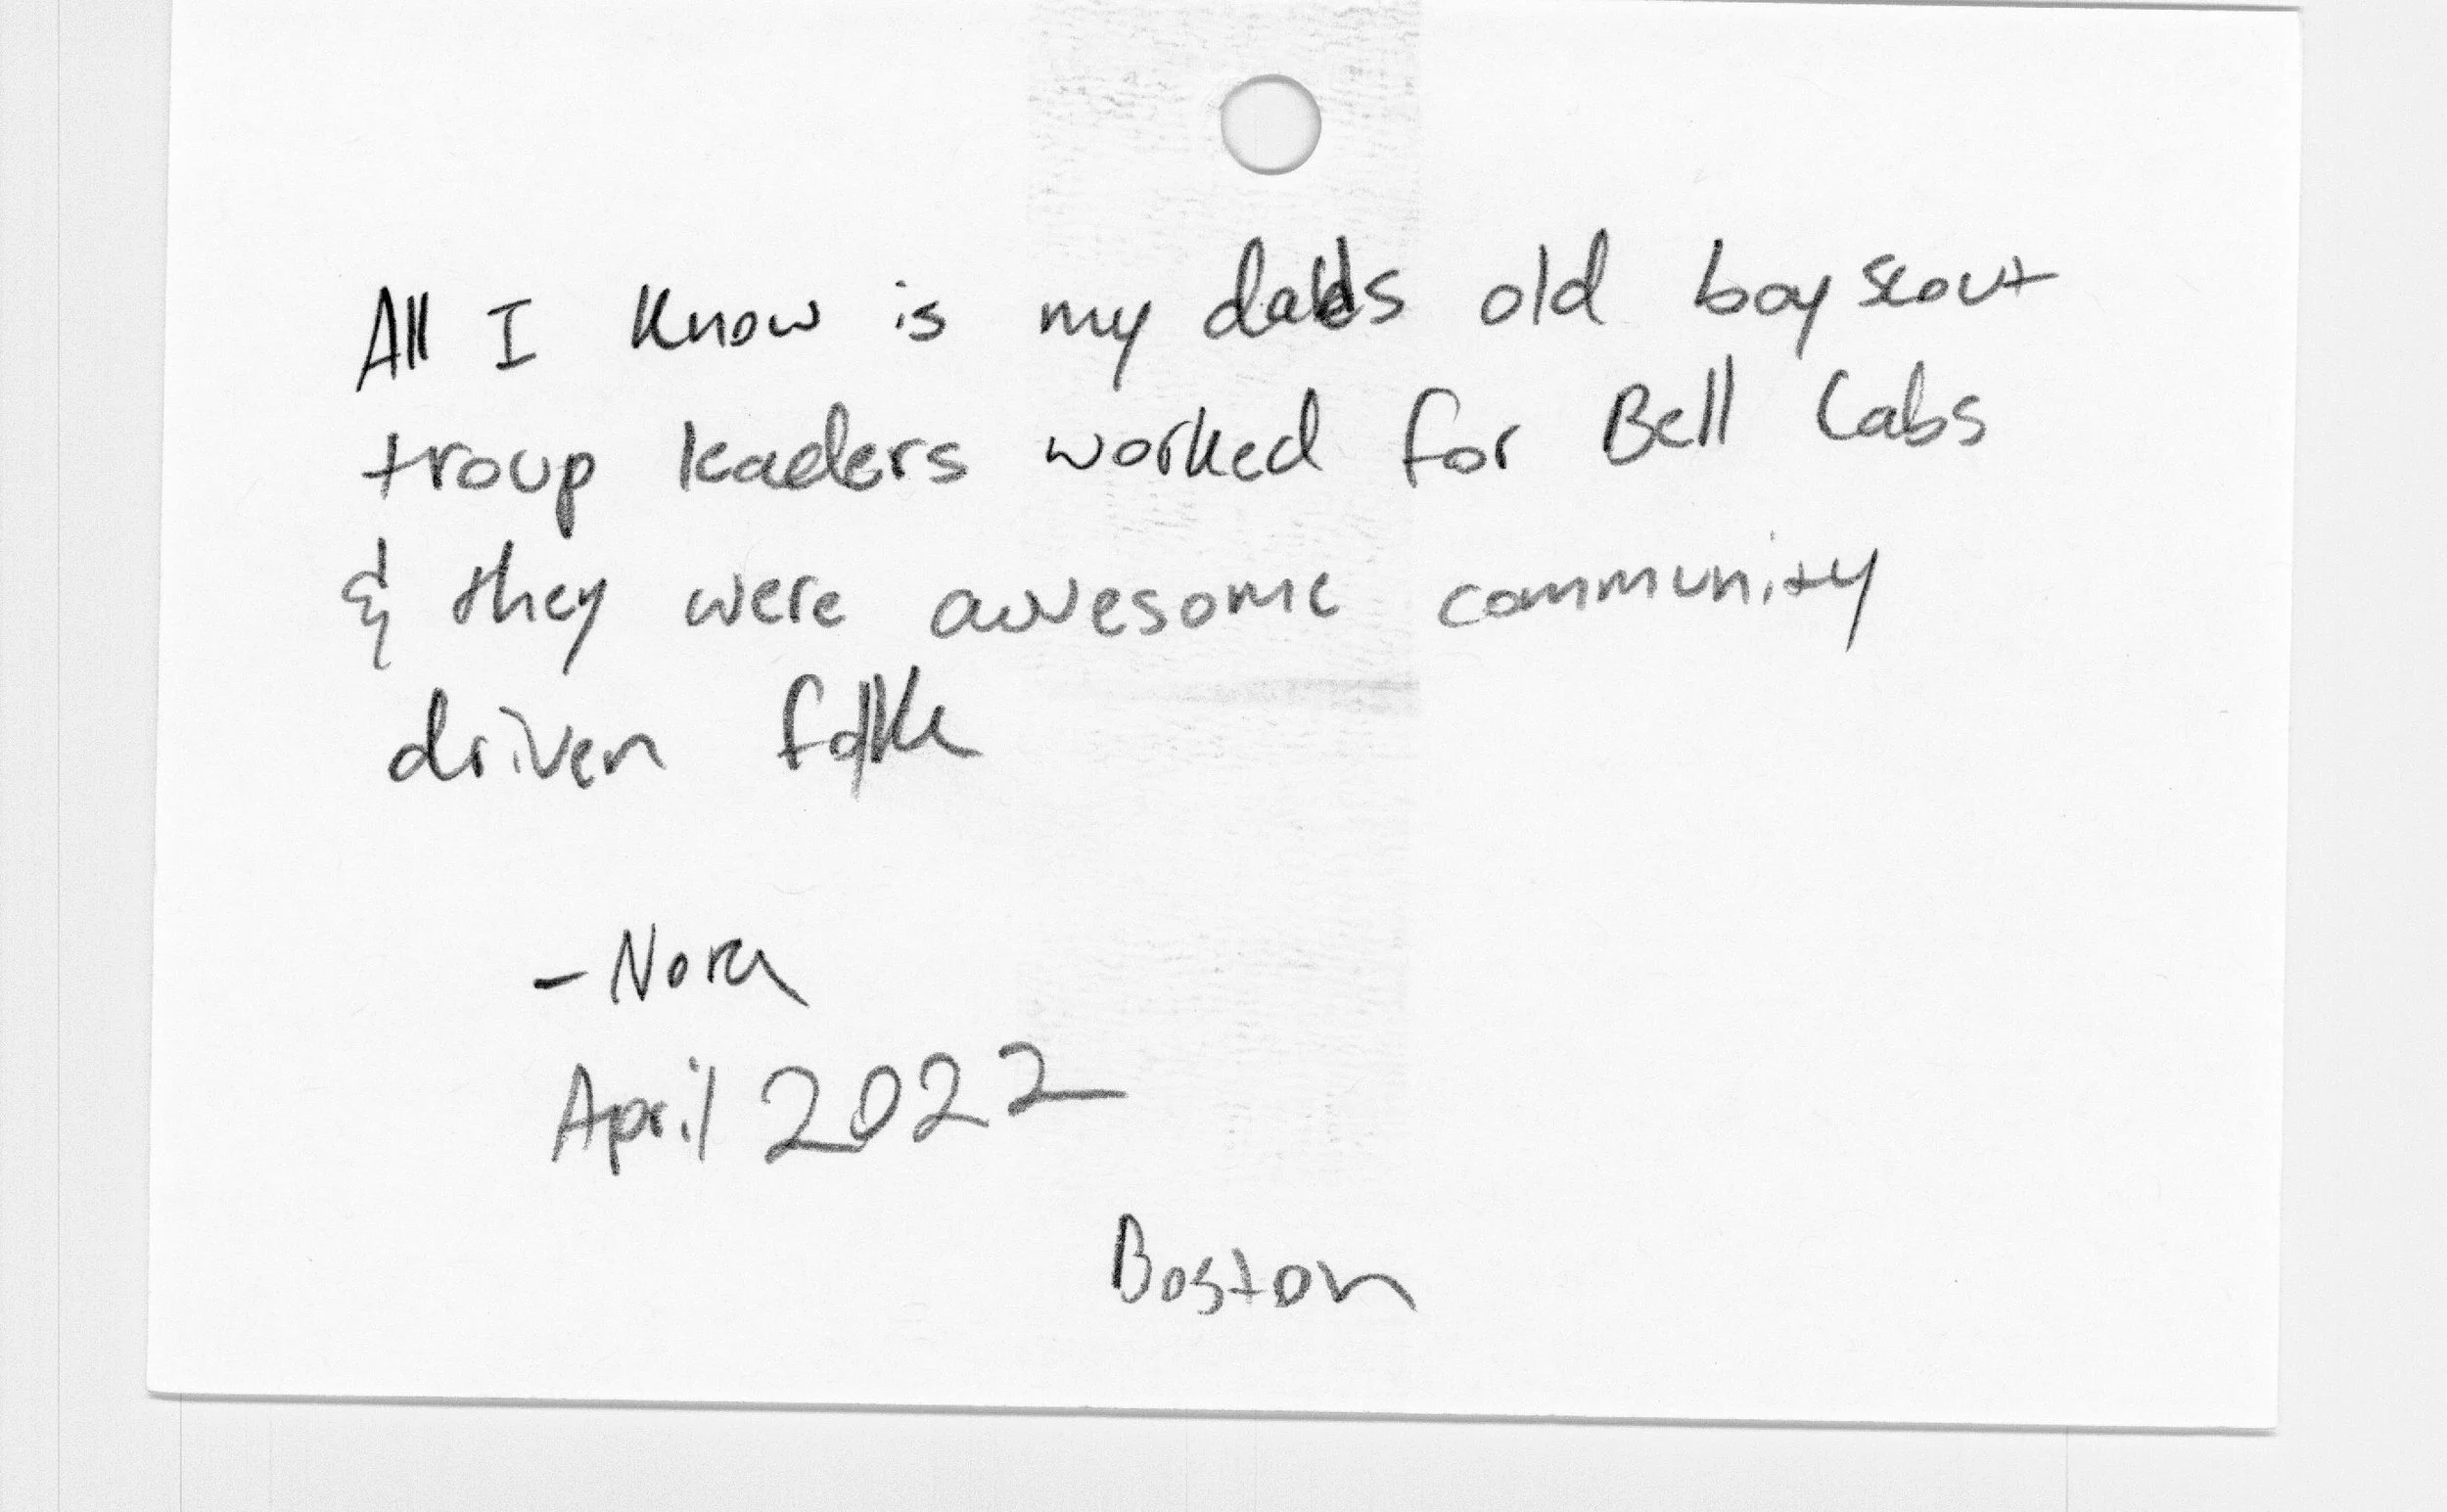 All I know is my dads old boy scout
troup leaders worked for Bell Labs
& they were awesome community
driven folke
-Nora
April 2022
Boston